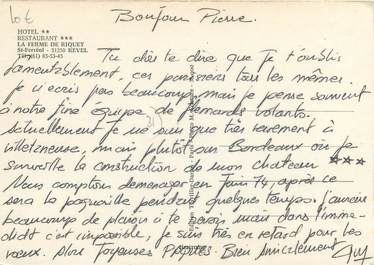 lot
Bonjour Pierre.
HOTEL ★★
RESTAURANT ★★★
LA FERME DE RIQUET
St-Ferréol - 31250 REVEL
Tél. (61) 83-53-45
Tu dois te dire que je t'oublis
lamentablement, ces parisiens tous les mêmes.
je n'ecris pas beaucoup, mais je pense souvent
à notre fine equipe de flemands volants.
Actuellement je ne suis que très rarement à
villetaneuse, mais plutôt sur Bordeaux où je
surveille la construction de mon chateau ★★★
Nous comptons demenager en Juin 74, après ce
sera la pagaille pendant quelques temps. j'aurai
beaucoup de plaisir à te revoir mais dans l'imme-
diat c'est impossible, je suis très en retard pour les
vœux. Alors Joyeuses Pâques. Bien amicalement Guy